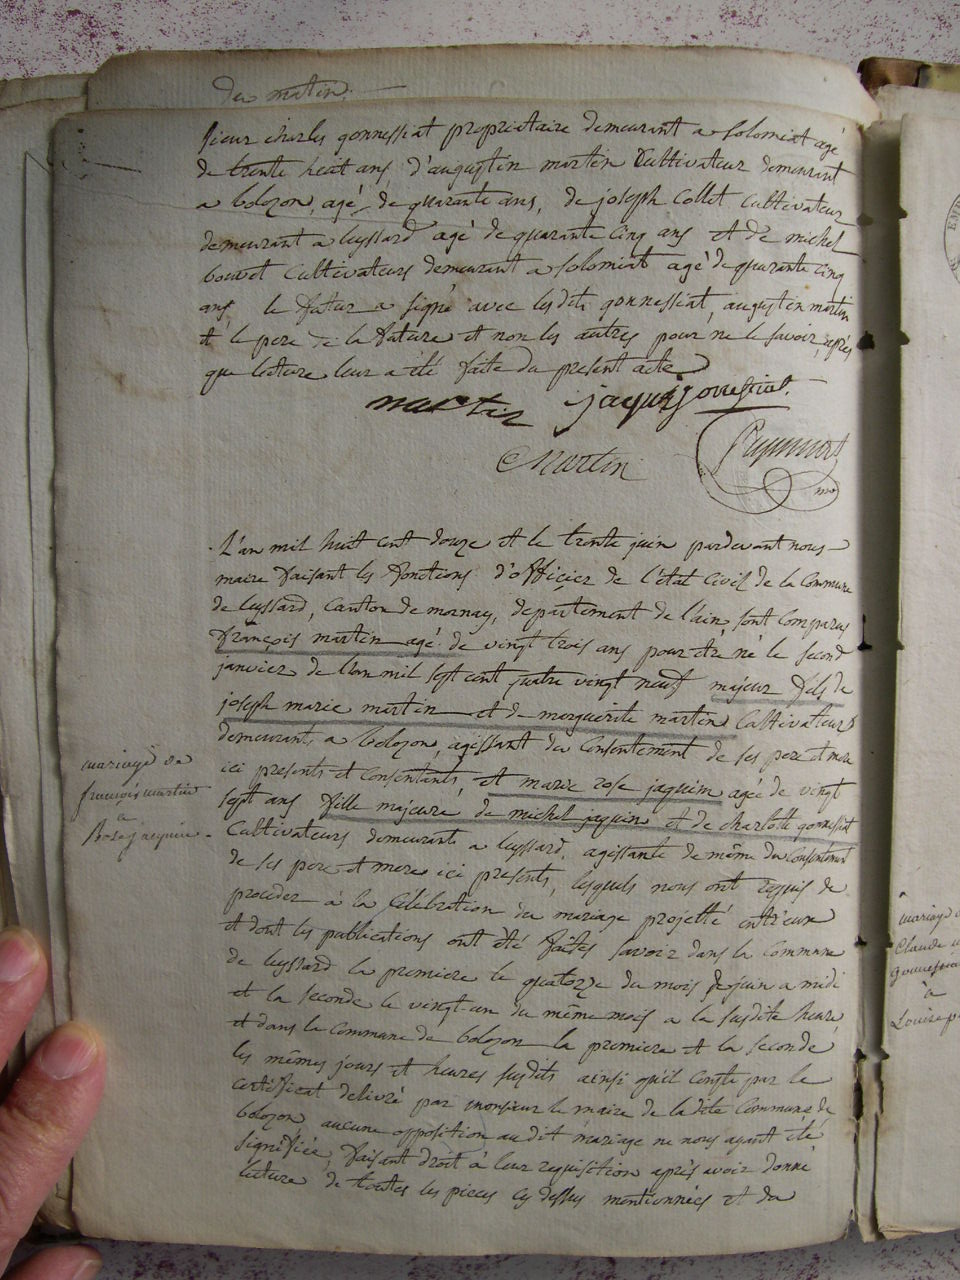 du matin.
sieur charles gonnessiat propriataire demeurant a solomiat agé
de trente heuit ans d'augustin martin Cultivateur demeurant
a bolozon, agé de quarante ans, de joseph Collet Cultivateur
demeurant a leyssard agé de quarante cinq ans et de michel
bouvet Cultivateurs demeurant a solomiat agé de quarante cinq
ans le futur a signé avec lesdits gonnessiat, augustin martin
et le pere de la future et non les autres pour ne le savoir, après
que lecture leur a été faite du present acte
martin jaquin gonnessiat.
Martin
L'an mil huit cent douze et le trente juin pardevant nous
maire faisant les fonctions d'officier de l'état Civil de la Commune
de leyssard, Canton de mornay, departement de l'ain sont Comparus
françois martin agé de vingt trois ans pour être né le second
janvier de l'an mil sept cent quatre vingt neuf majeur fils de
joseph marie martin et de morguerite martin Cultivateurs
demeurants a bolozon, agissant du Consentement de ses pere et mere
ici presents et Consentants, et marie rose jaquin agée de vingt
sept ans fille majeure de michel jaquin et de charlotte gonnessiat
Cultivateurs demeurants a leyssard, agissante de même du Consentement
de ses pere et mere ici presents, lesquels nous ont requis de
proceder à la Célébration du mariage projetté entr'eux
et dont les publications ont été faites savoir dans la Commune
de leyssard la premiere le quatorze du mois de juin a midi
et la seconde le vingt-un du même mois a la susdite heure
et dans la Commune de bolozon la premiere et la seconde
les mêmes jours et heures susdits ainsi qu'il Conste par le
certificat delivré par monsieur le maire de ladite Commune de
bolozon, aucune opposition audit mariage ne nous ayant été
signifiée, faisant droit à leur requisition après avoir donné
lecture de toutes les pieces cy dessus mentionnées et du
mariage de
françois martin
a
Rose jaquin.
mariage d
Claude
à
Louise